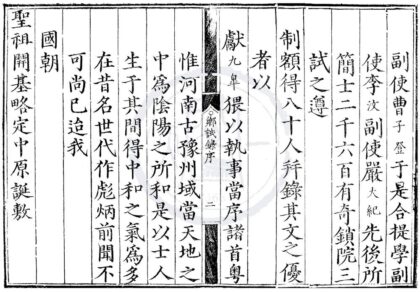 副使曹子登于是合提學副
使李汶副使嚴大紀先後所
簡士二千六百有奇鎖院三
試之遵
制額得八十人并錄其文之優
者以
獻九皋猥以執事當序諸首粤
鄉試錄序 二
惟河南古豫州域當天地之
中為陰陽之所和是以士人
生于其間得中和之氣為多
在昔名世代作彪炳前聞不
可尚已迨我
國朝
聖祖開基略定中原誕敷